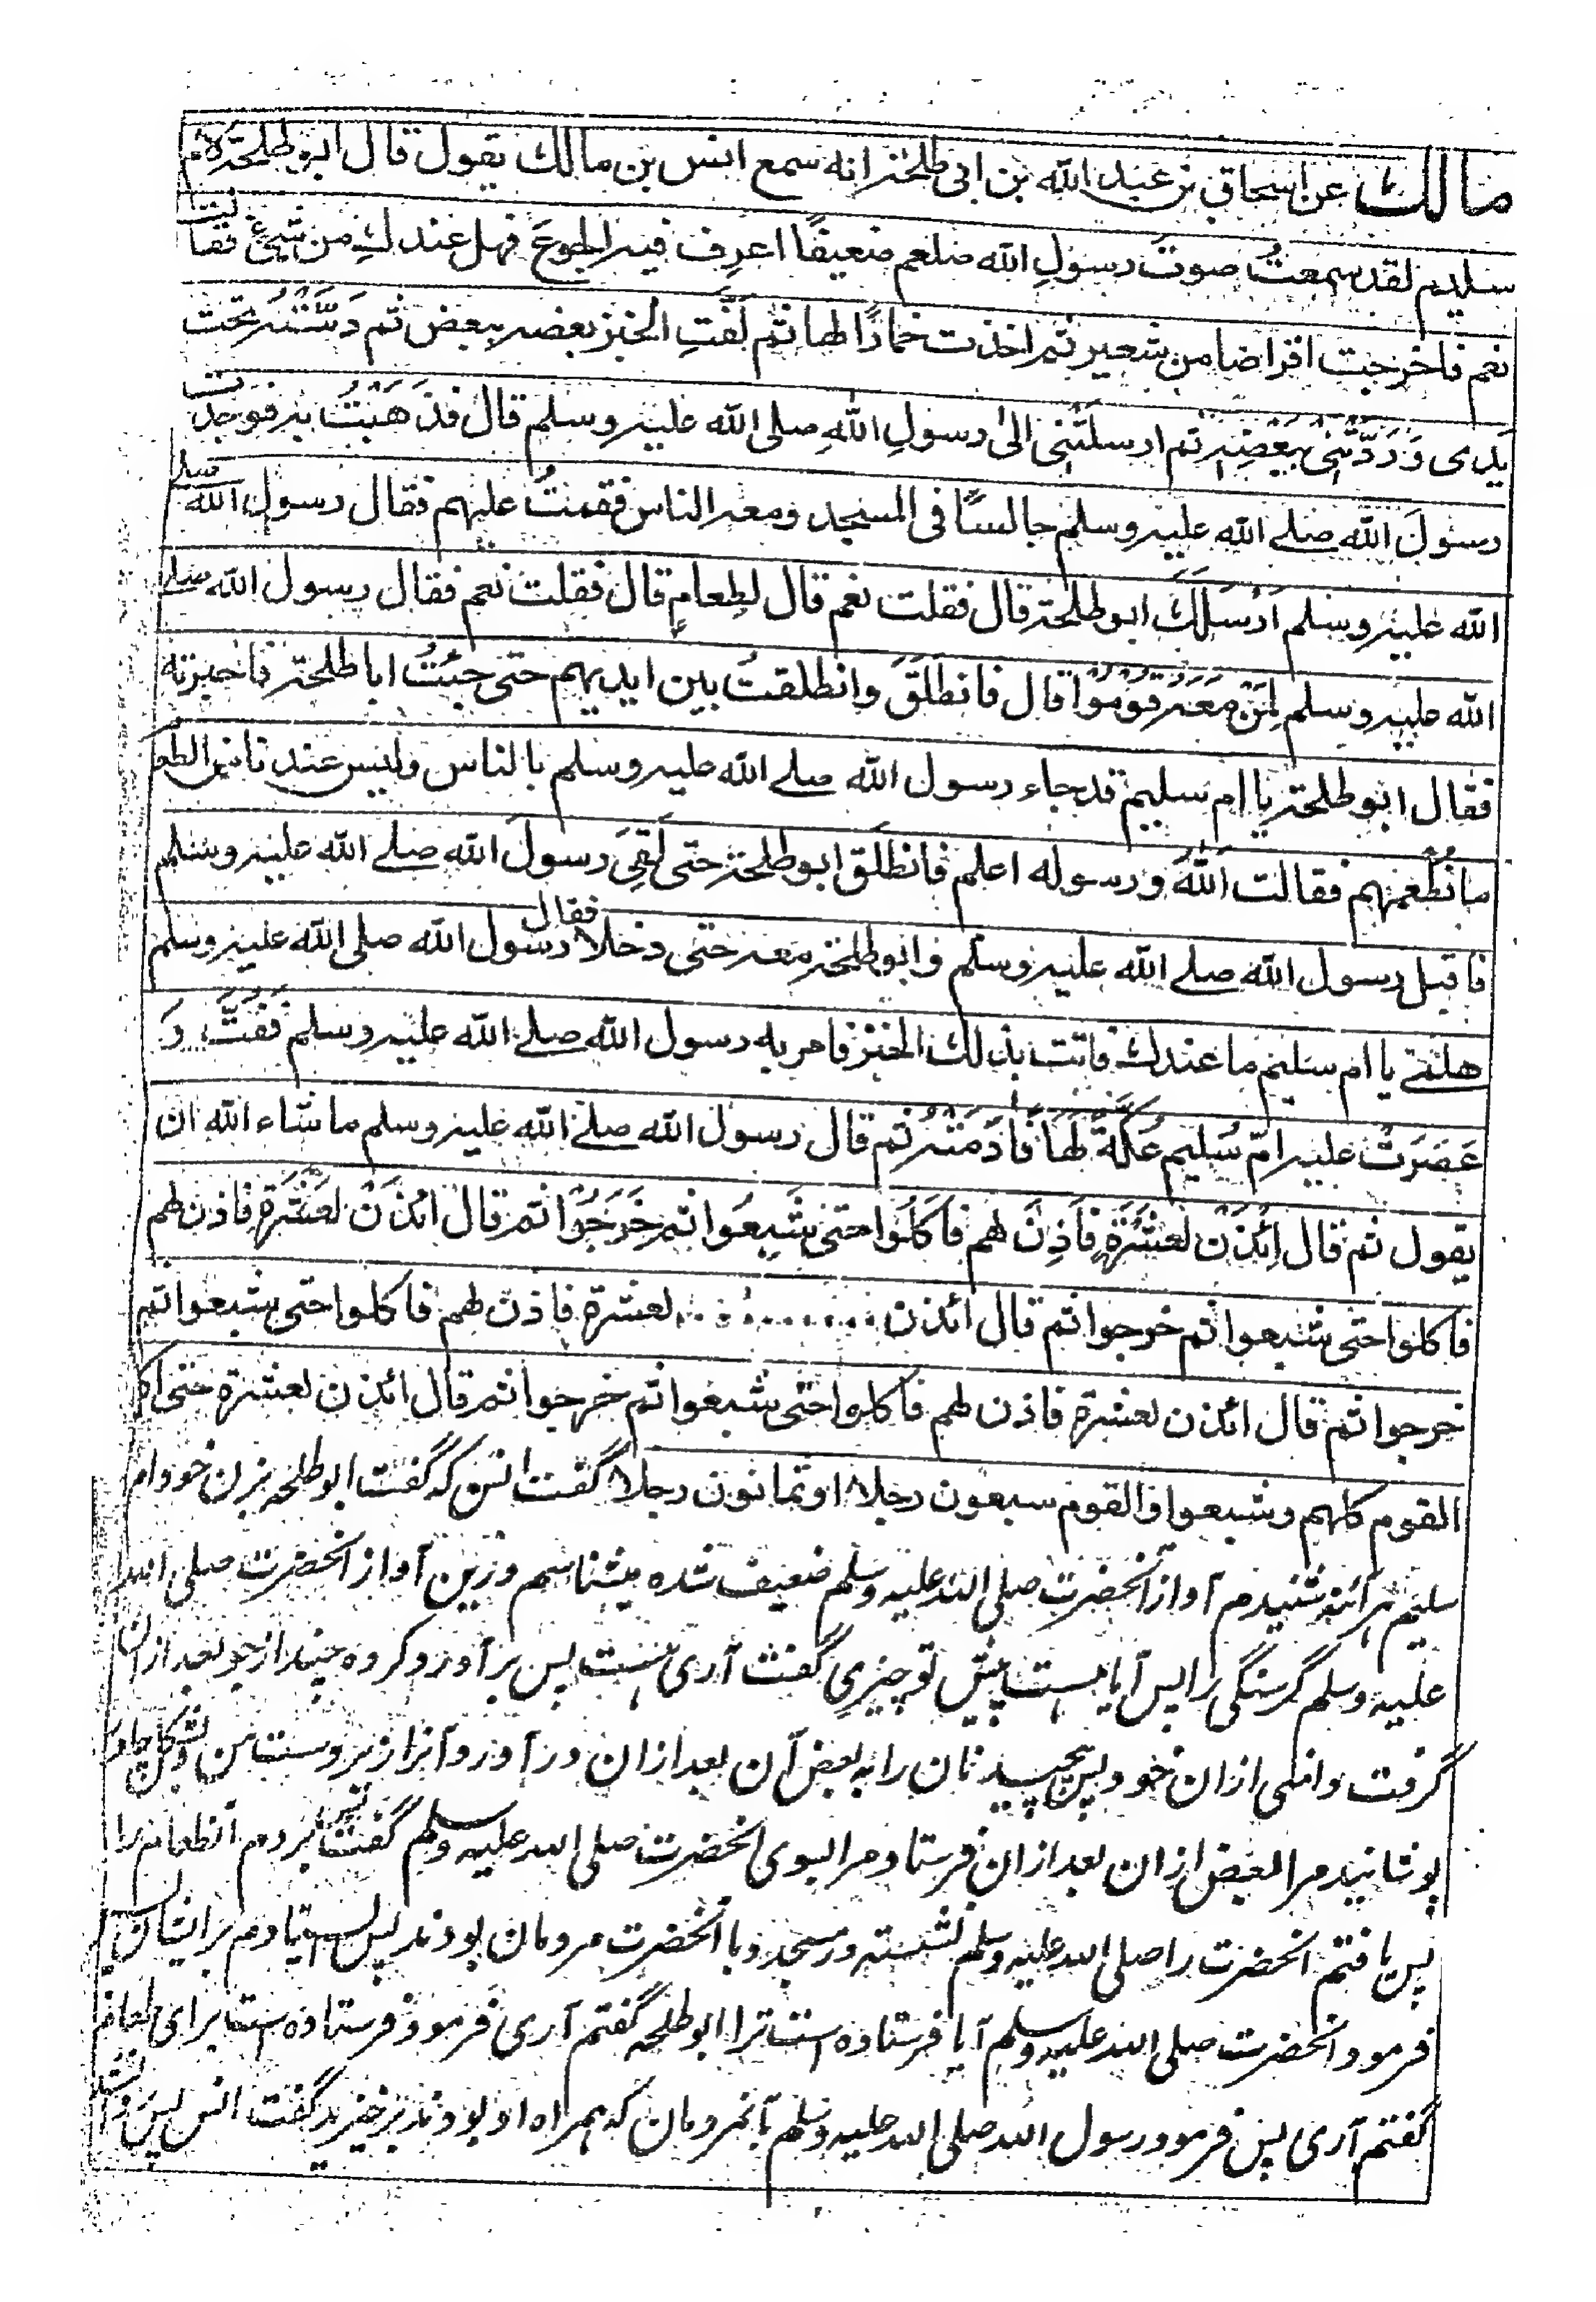 مالك عن اسحاق بن عبد الله بن ابى طلحة انه سمع انس بن مالك يقول قال ابو طلحة لام
سليم لقد سمعتُ صوتَ رسولِ الله صلعم ضعيفًا اعرِف فيه الجوعَ فهل عندكِ من شيئ فقالت
نعم فاخرجت اقراصا من شعير ثم اخذت خمارًا لها ثم لَفَّتِ الخبز بعضه ببعض ثم دَسَّتْهُ تحت
يَدى وَرَدَّتْنِى ببَعْضِه ثم ارسلَتْنِى الىٰ رسولِ اللهِ صلى الله عليه وسلم قال فذَهَبْتُ به فوجدت
رسولَ الله صلے الله عليه وسلم جالسًا فى المسجد ومعه الناس فقمتُ عليهم فقال رسول الله صلے
الله عليه وسلم اَرْسَلَكَ ابو طلحة قال فقلت نعم قال لِطعامٍ قال فقلت نعم فقال رسول الله صلے
الله عليه وسلم لِمَنْ مَعَهُ قُوْمُوْا قال فانطَلَقَ وانطلقتُ بين ايديهم حتى جئتُ ابا طلحة فاخبرته
فقال ابو طلحة يا ام سليم قد جاء رسول الله صلے الله عليه وسلم بالناس وليس عندنا من الطعام
ما نُطْعمهم فقالت اَللهُ ورسوله اعلم فانطلَقَ ابو طلحة حتى لَقِىَ رسولَ الله صلے الله عليه وسلم
فاقبل رسول الله صلے الله عليه وسلم وابو طلحة معه حتى دخلا فقال رسول الله صلى الله عليه وسلم
هلمّے يا ام سليم ما عندك فاتت بذلك الخبز فامر به رسول الله صلے الله عليه وسلم فَفُتَّ وَ
عَصَرَتْ عليه امّ سُليم عُكَّةً لهَا فَأَدَمَتْهُ ثم قال رسول الله صلے الله عليه وسلم ما شاء الله ان
يقول ثم قال اِئْذَنْ لعَشَرَةٍ فَاَذِنَ لهم فاكَلُوا حتى شَبِعَوا ثم خَرَجُوْا ثم قال ائذَنْ لعَشَرَةٍ فاذن لهم
فاكلوا حتى شبعوا ثم خرجوا ثم قال ائذن لعشرة فاذن لهم فاكلوا حتى شبعوا ثم
خرجوا ثم قال ائذن لعشرة فاذن لهم فاكلوا حتى شبعوا ثم خرجوا ثم قال ائذن لعشرة حتى اكل
القوم كلهم وشبعوا والقوم سبعون رجلا او ثمانون رجلا گفت انس كه گفت ابو طلحه بزن خود ام
سليم هرآئنه شنيدم آواز آنحضرت صلى الله عليه وسلم ضعيف شده ميشناسم درين آواز آنحضرت صلى الله
عليه وسلم گرسنگى را پس آيا هست پيش تو چيزى گفت آرى هست پس برآورد كرده چند از جو بعد ازان
گرفت دامنى ازان خود پس پيچيد نان را به بعض آن بعد ازان درآورد آنرا زير دست من بشكل چادر
پوشانيد مرا ببعض ازان بعد ازان فرستاد مرا بسوى آنحضرت صلى الله عليه وسلم گفت انس بردم آنطعام را
پس يافتم آنحضرت را صلى الله عليه وسلم نشسته در مسجد وبا آنحضرت مردمان بودند پس استادم برايشان پس
فرمود آنحضرت صلى الله عليه وسلم آيا فرستاده است ترا ابو طلحه گفتم آرى فرمود فرستاده است براى طعام
گفتم آرى پس فرمود رسول الله صلى الله عليه وسلم بآنمردمان كه همراه او بودند برخيزيد گفت انس پس روان شد